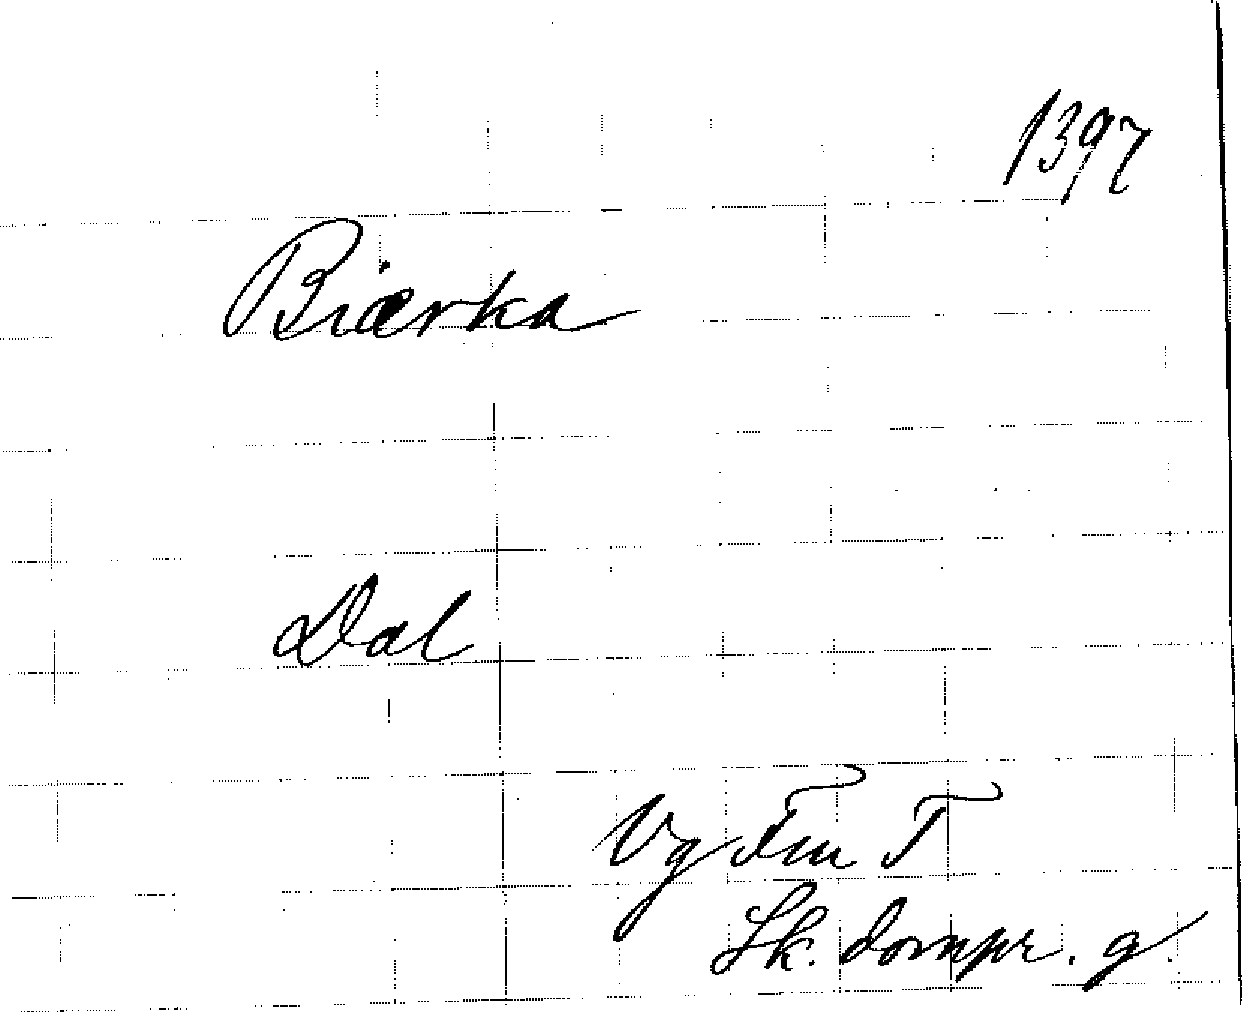 1397
Biærka
Dal
Vg Fru T
Sk. domp. g.